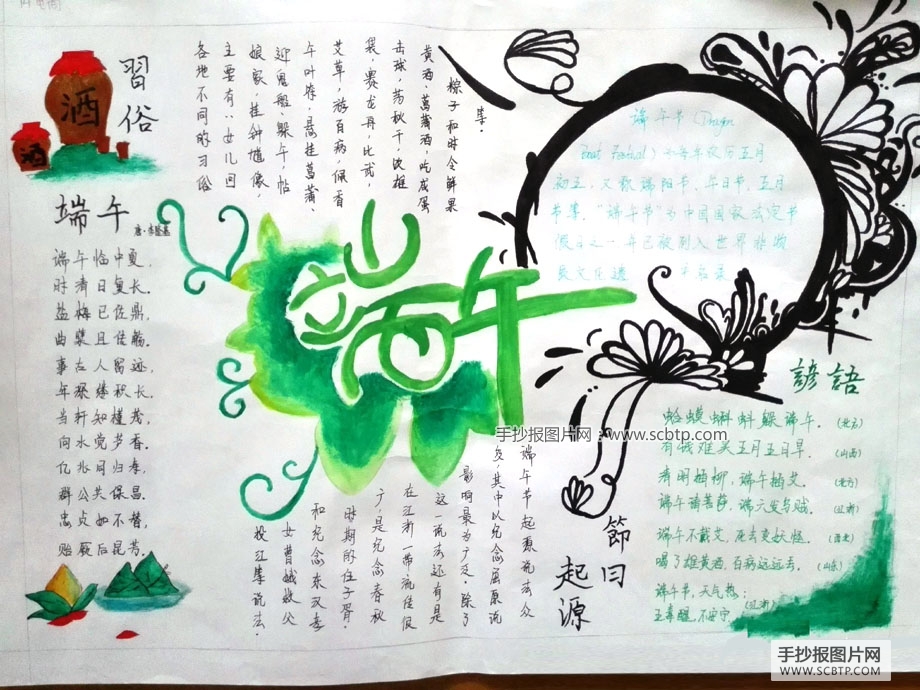 习俗
酒
酒
各地不同的习俗
主要有:女儿回
娘家,挂钟馗像,
迎鬼船、躲午,帖
午叶符,悬挂菖蒲、
艾草,游百病,佩香
囊,赛龙舟,比武,
击球,荡秋千,饮雄
黄酒、菖蒲酒,吃咸蛋
粽子和时令鲜果
等.
端午
唐·李隆基
端午临中夏,
时清日复长.
盐梅已佐鼎,
曲糵且传觞.
事古人留迹,
年深缕积长.
当轩知槿茂,
向水觉芦香.
亿兆同归寿,
群公共保昌.
忠贞如不替,
贻厥后昆芳.
端午
端午节(Dragon
Boat Festival)为每年农历五月
初五,又称端阳节、午日节、五月
节等.“端午节”为中国国家法定节
假日之一,并已被列入世界非物
质文化遗产名录
諺語
蛤蟆蝌蚪躲端午.(北京)
有钱难买五月五日旱.(山西)
清明插柳,端午插艾.(北方)
端午请菩萨,端六发乌贼.(江浙)
端午不戴艾,死去变妖怪.
喝了雄黄酒,百病远远去.(山东)
端午节,天气热;
五毒醒,不安宁.(江浙)
節日
起源
端午节起源说法众
多,其中以纪念屈原说
影响最为广泛.除了
这一说法还有是
在江浙一带流传很
广,是纪念春秋
时期的伍子胥.
和纪念东汉孝
女曹娥救父
投江等说法.
手抄报图片网:www.scbtp.com
手抄报图片网
WWW.SCBTP.COM